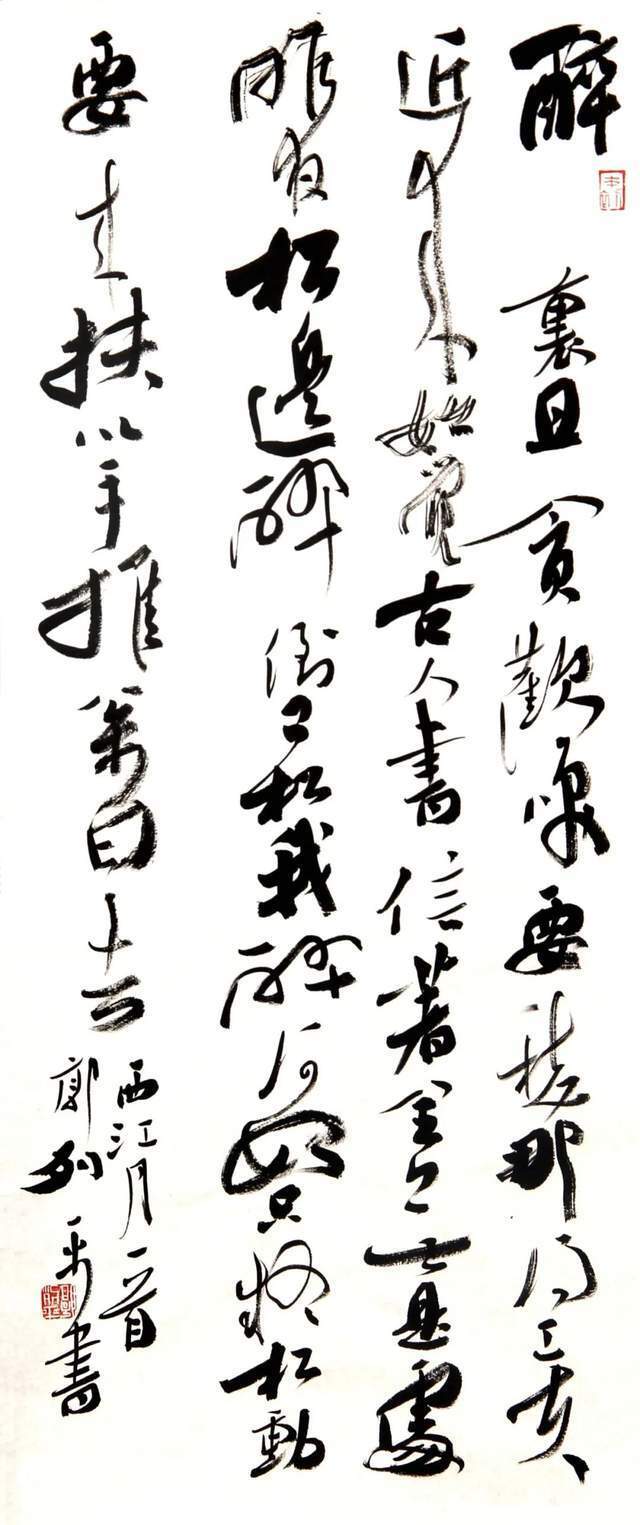 醉裏且貪歡咲要愁那得工夫
近来始覺古人書信著全無是處
昨夜松邊醉倒問松我醉何如只疑松動
要来扶以手推松曰去
西江月一首
郭列平書